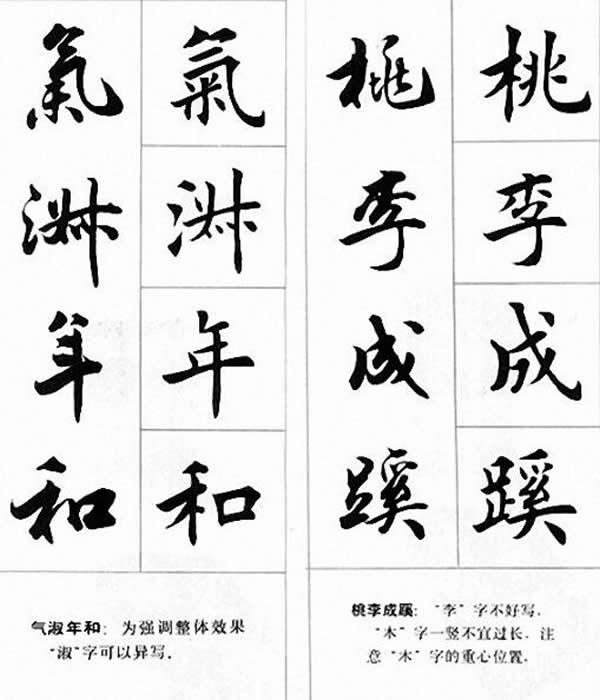 氣淑年和
氣淑年和
气淑年和：为强调整体效果
“淑”字可以异写．
桃李成蹊
桃李成蹊
桃李成蹊：“李”字不好写．
“木”字一竖不宜过长．注
意“木”字的重心位置．